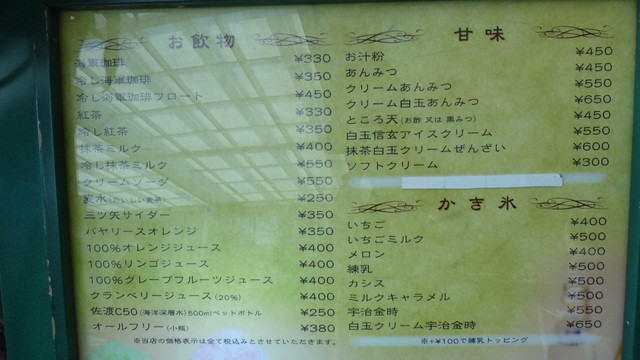 お飲物
海軍珈琲 ¥330
冷し海軍珈琲 ¥350
冷し海軍珈琲フロート ¥450
紅茶 ¥330
冷し紅茶 ¥350
抹茶ミルク ¥400
冷し抹茶ミルク ¥550
クリームソーダ ¥550
¥250
三ツ矢サイダー ¥350
バヤリースオレンジ ¥350
100%オレンジジュース ¥400
100%リンゴジュース ¥400
100%グレープフルーツジュース ¥400
クランベリージュース(20%) ¥400
佐渡C50(海洋深層水)500mlペットボトル ¥250
オールフリー(小瓶) ¥380
※当店の価格表示は全て税込みとさせていただきます。
甘味
お汁粉 ¥450
あんみつ ¥450
クリームあんみつ ¥550
クリーム白玉あんみつ ¥650
ところ天(お酢 又は 黒みつ) ¥450
白玉信玄アイスクリーム ¥550
抹茶白玉クリームぜんざい ¥600
ソフトクリーム ¥300
かき氷
いちご ¥400
いちごミルク ¥500
メロン ¥400
練乳 ¥500
カシス ¥500
ミルクキャラメル ¥500
宇治金時 ¥550
白玉クリーム宇治金時 ¥650
※+¥100で練乳トッピング